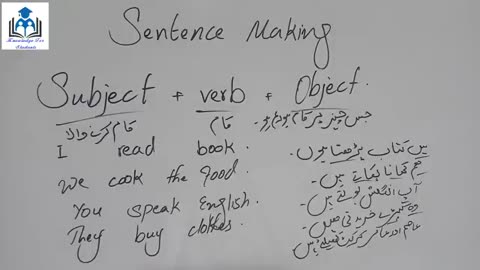 Knowledge For
Students
Sentence Making
Subject + verb + Object.
کام کرنے والا کام جس چیز پر کام ہو رہا ہو۔
I read book. میں کتاب پڑھتا ہوں۔
We cook the food. ہم کھانا پکاتے ہیں۔
You speak English. آپ انگلش بولتے ہیں۔
They buy clothes. وہ کپڑے خریدتے ہیں۔
عاصم اور عاکس کرکٹ کھیلتے ہیں